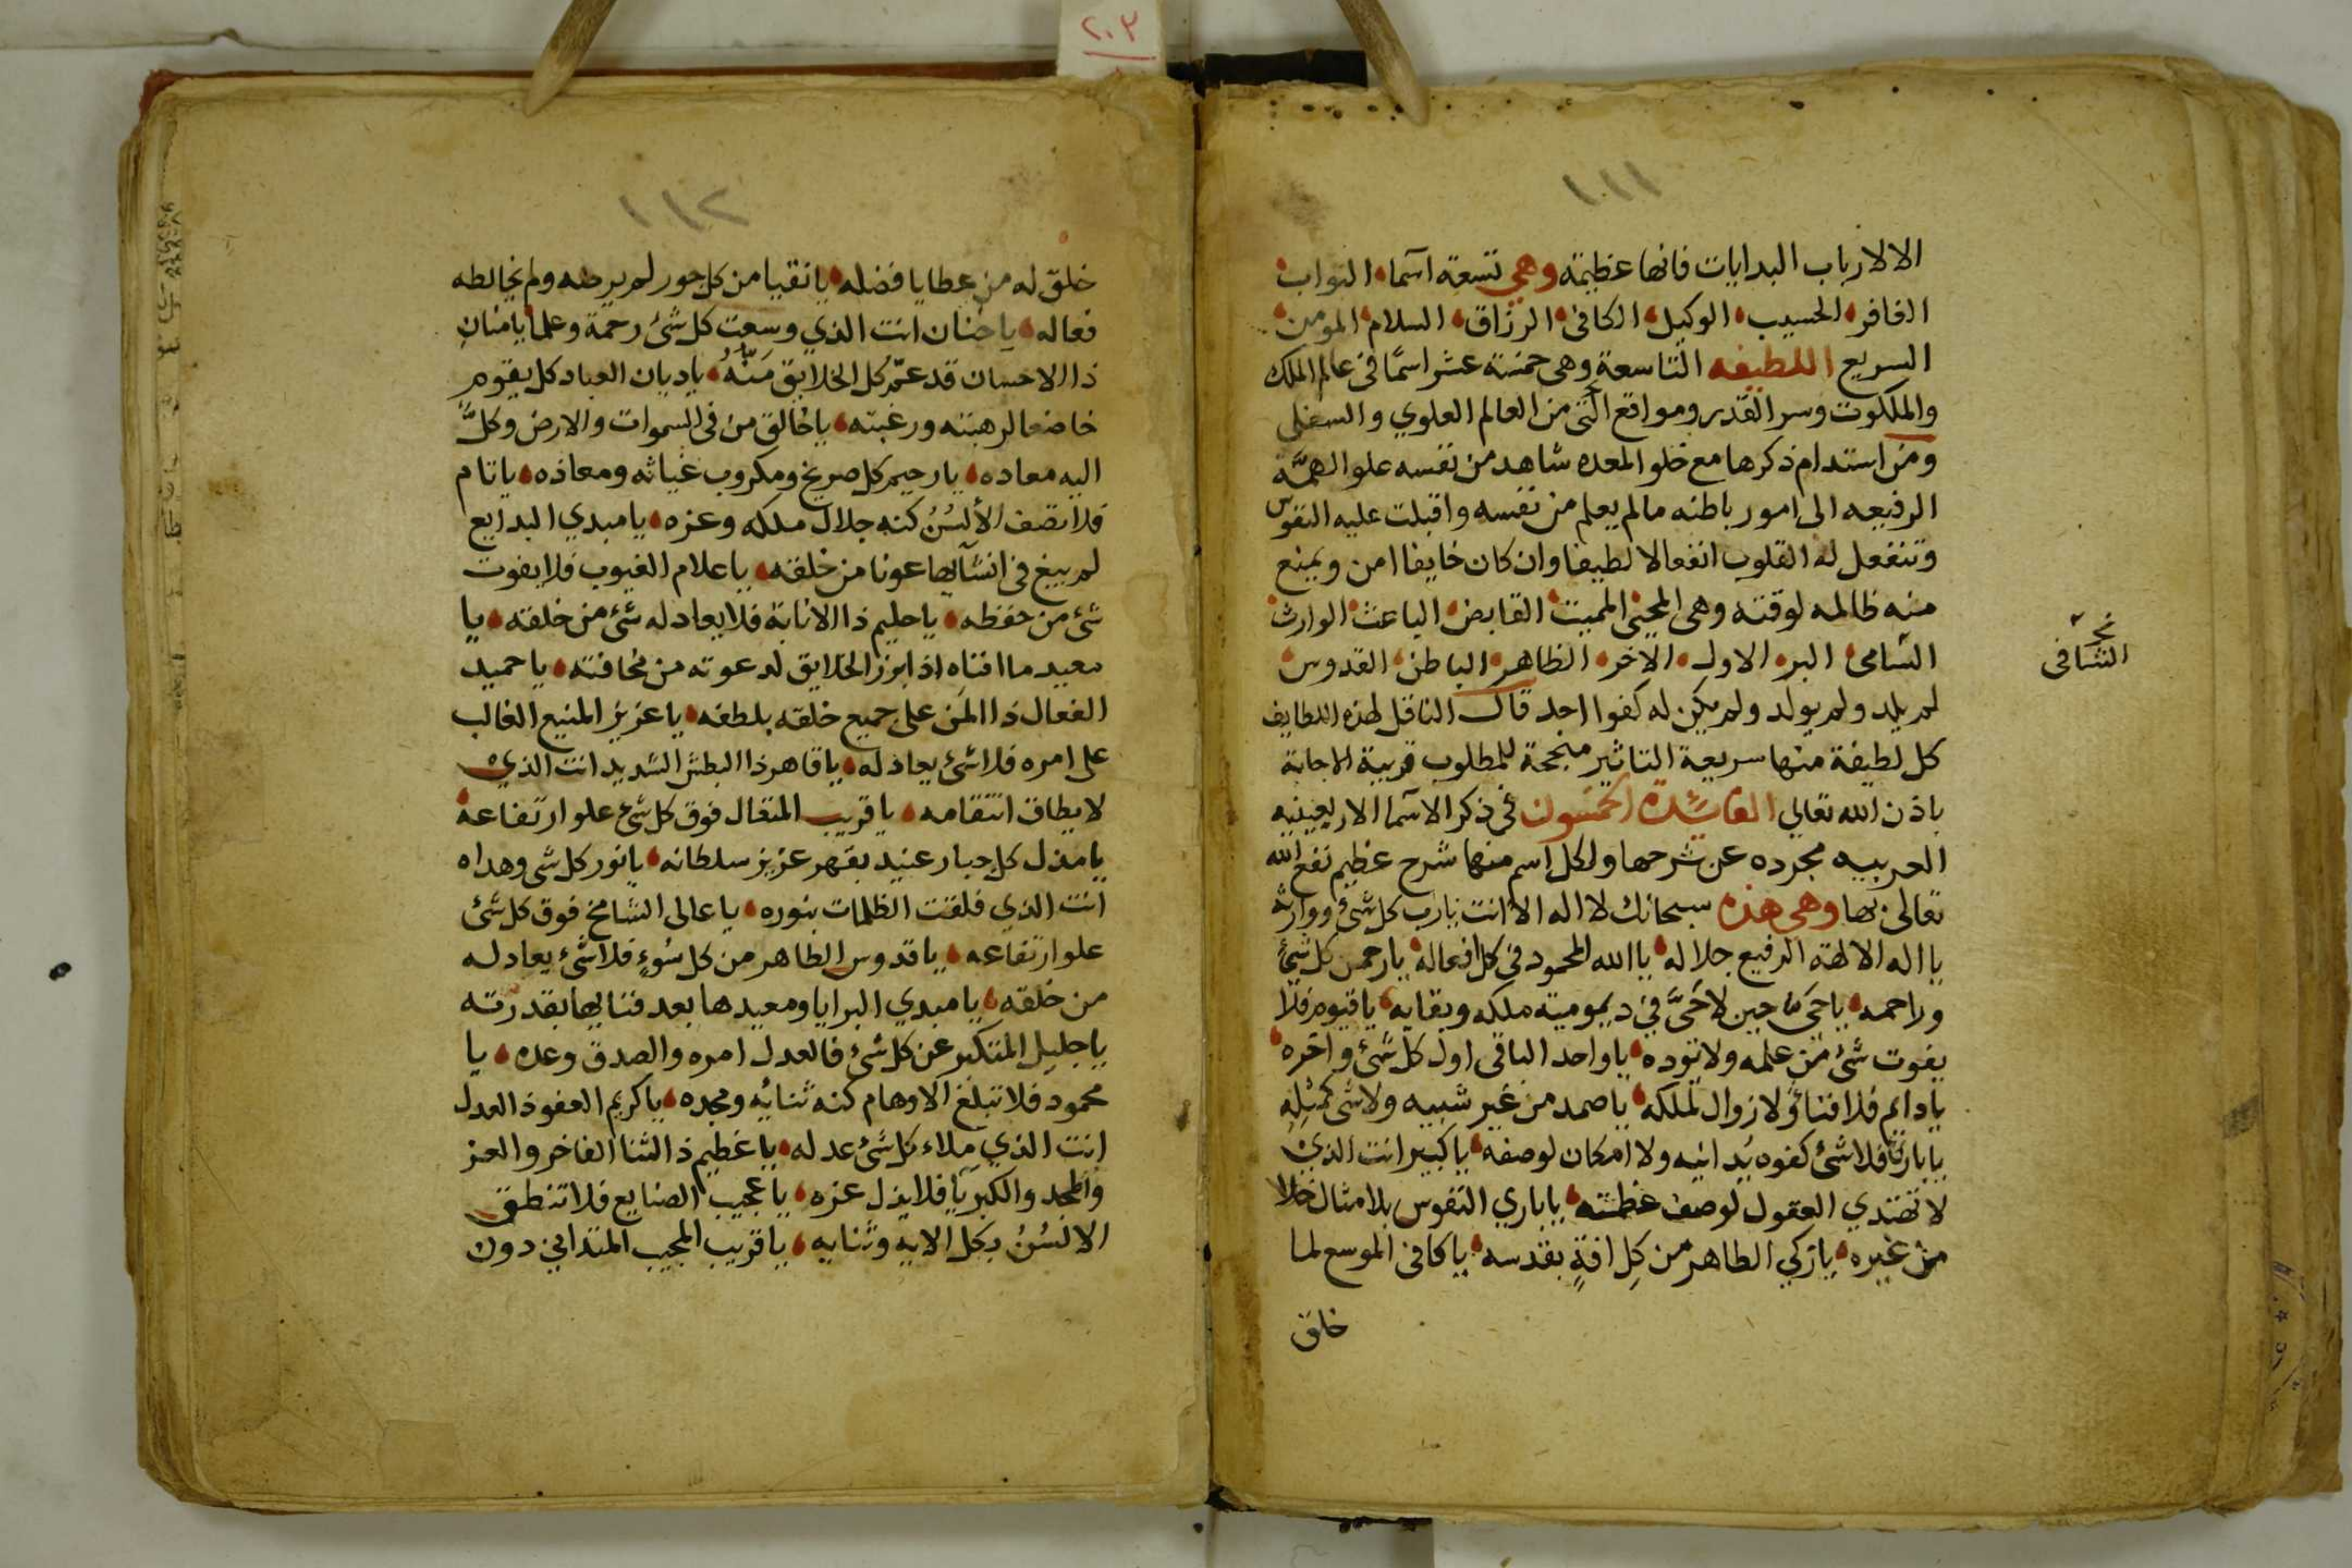 ٢٠٣
١١١
الا لارباب البدايات فانها عظيمة وهي تسعة اسما التواب
الغافر الحسيب الوكيل الكافي الرزاق السلام المومن
السريع اللطيفه التاسعة وهي خمسة عشر اسمًا في عالم الملك
والملكوت وسر القدر ومواقع التي من العالم العلوي والسفلي
ومن استدام ذكرها مع خلو المعده شاهد من نفسه علو الهمّة
الرفيعه الى امور باطنه مالم يعلم من نفسه واقبلت عليه النفوس
وتنفعل له القلوب انفعالا لطيفا وان كان خايفا امن ويمنع
منه ظالمه لوقته وهي المحيي المميت القابض الباعث الوارث
السامي البر الاول الاخر الظاهر الباطن القدوس
الشافي
لم يلد ولم يولد ولم يكن له كفوا احد قال الناقل لهذه اللطايف
كل لطيفة منها سريعة التاثير منجحة للمطلوب قريبة الاجابة
باذن الله تعالى الفائدة الخمسون في ذكر الاسما الاربعينيه
مجرده عن شرحها ولكل اسم منها شرح عظيم نفع الله
تعالى بها وهي هذه سبحانك لا اله الا انت يارب كل شئ ووارثه
يا اله الالهة الرفيع جلاله يا الله المحمود في كل افعاله يا رحمن كل شئ
وراحمه يا حي حين لا حَيَّ في ديمومية ملكه وبقايه يا قيوم فلا
يفوت شئ من علمه ولا يؤده يا واحد الباقي اول كل شئ واخره
يا دايم فلا فناؤ لا زوال لملكه يا صمد من غير شبيه ولا شئ كمثله
يا بار فلا شئ كفوه يدانيه ولا امكان لوصفه يا كبير انت الذي
لا تهتدي العقول لوصف عظمته يا باري النفوس بلا مثال خلا
من غيره يا زكي الطاهر من كل افةٍ بقدسه يا كافي الموسع لما
خلق
١١٢
خلق له من عطايا فضله يا نقيا من كل جور لم يرضه ولم يخالطه
فعاله يا حنان انت الذي وسعت كل شئ رحمة وعلما يا منان
ذا الاحسان قد عمّ كل الخلايق مَنّهُ يا ديان العباد كل يقوم
خاضعا لرهبته ورغبته يا خالق من في السموات والارض وكلّ
اليه معاده يا رحيم كل صريخ ومكروب غياثه ومعاذه يا تام
فلا تصف الألسُنُ كنه جلال ملكه وعزه يا مبدي البدايع
لم يبغ في انشآئها عونا من خلقه يا علام الغيوب فلا يفوت
شئ من حفظه يا حليم ذا الاناة فلا يعادله شئ من خلقه يا
معيد ما افناه اذا برز الخلايق لدعوته من مخافته يا حميد
الفعال ذا المن على جميع خلقه بلطفه يا عزيز المنيع الغالب
على امره فلا شئ يعادله يا قاهر ذا البطش الشديد انت الذي
لا يطاق انتقامه يا قريب المتعال فوق كل شئ علو ارتفاعه
يا مذل كل جبار عنيد بقهر عزيز سلطانه يا نور كل شي وهداه
انت الذي فلقت الظلمات بنوره يا عالي الشامخ فوق كل شئ
علو ارتفاعه يا قدوس الطاهر من كل سُوءٍ فلا شئ يعادله
من خلقه يا مبدي البرايا ومعيدها بعد فنايها بقدرته
يا جليل المتكبر عن كل شئ فالعدل امره والصدق وعده يا
محمود فلا تبلغ الاوهام كنه ثنائه ومجده يا كريم العفو ذا العدل
انت الذي ملاء كل شئ عدله يا عظيم ذا الثنا الفاخر والعز
والمجد والكبريآ فلا يذل عزه يا عجيب الصنايع فلا تنطق
الالسُنُ بكل الايه وثنايه يا قريب المجيب المتداني دون